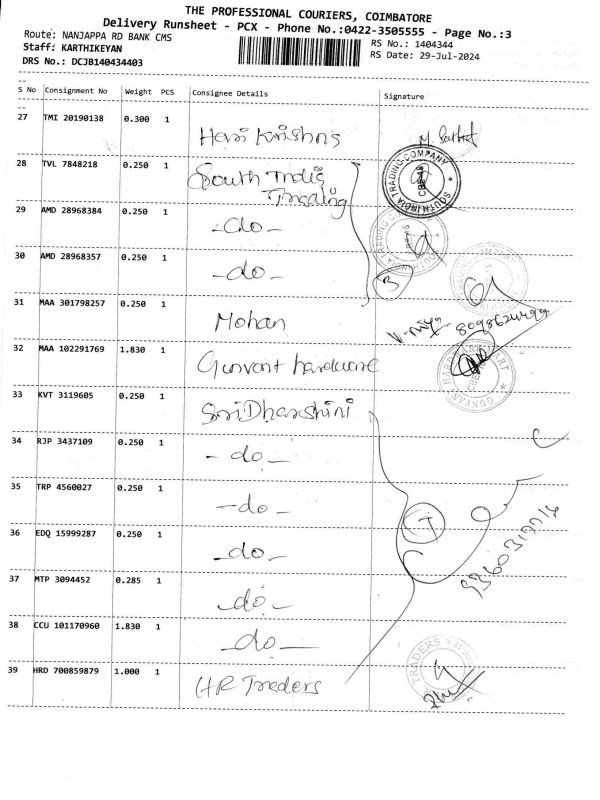 THE PROFESSIONAL COURIERS, COIMBATORE
Delivery Runsheet - PCX - Phone No.:0422-3505555 - Page No.:3
Route: NANJAPPA RD BANK CMS
RS No.: 1404344
Staff: KARTHIKEYAN
RS Date: 29-Jul-2024
DRS No.: DCJB140434403
S No Consignment No Weight PCS Consignee Details Signature
27 TMI 20190138 0.300 1 Hari Krishns
28 TVL 7848218 0.250 1 South India Trading
SOUTH INDIA TRADING COMPANY
29 AMD 28968384 0.250 1 -do-
30 AMD 28968357 0.250 1 -do-
3
31 MAA 301798257 0.250 1 Mohan
32 MAA 102291769 1.830 1 Gunvant hardware
33 KVT 3119605 0.250 1 Sri Dharshini
34 RJP 3437109 0.250 1 -do-
35 TRP 4560027 0.250 1 -do-
36 EDQ 15999287 0.250 1 -do-
37 MTP 3094452 0.285 1 -do-
38 CCU 101170960 1.830 1 -do-
39 HRD 700859879 1.000 1 HR Traders
TRADERS